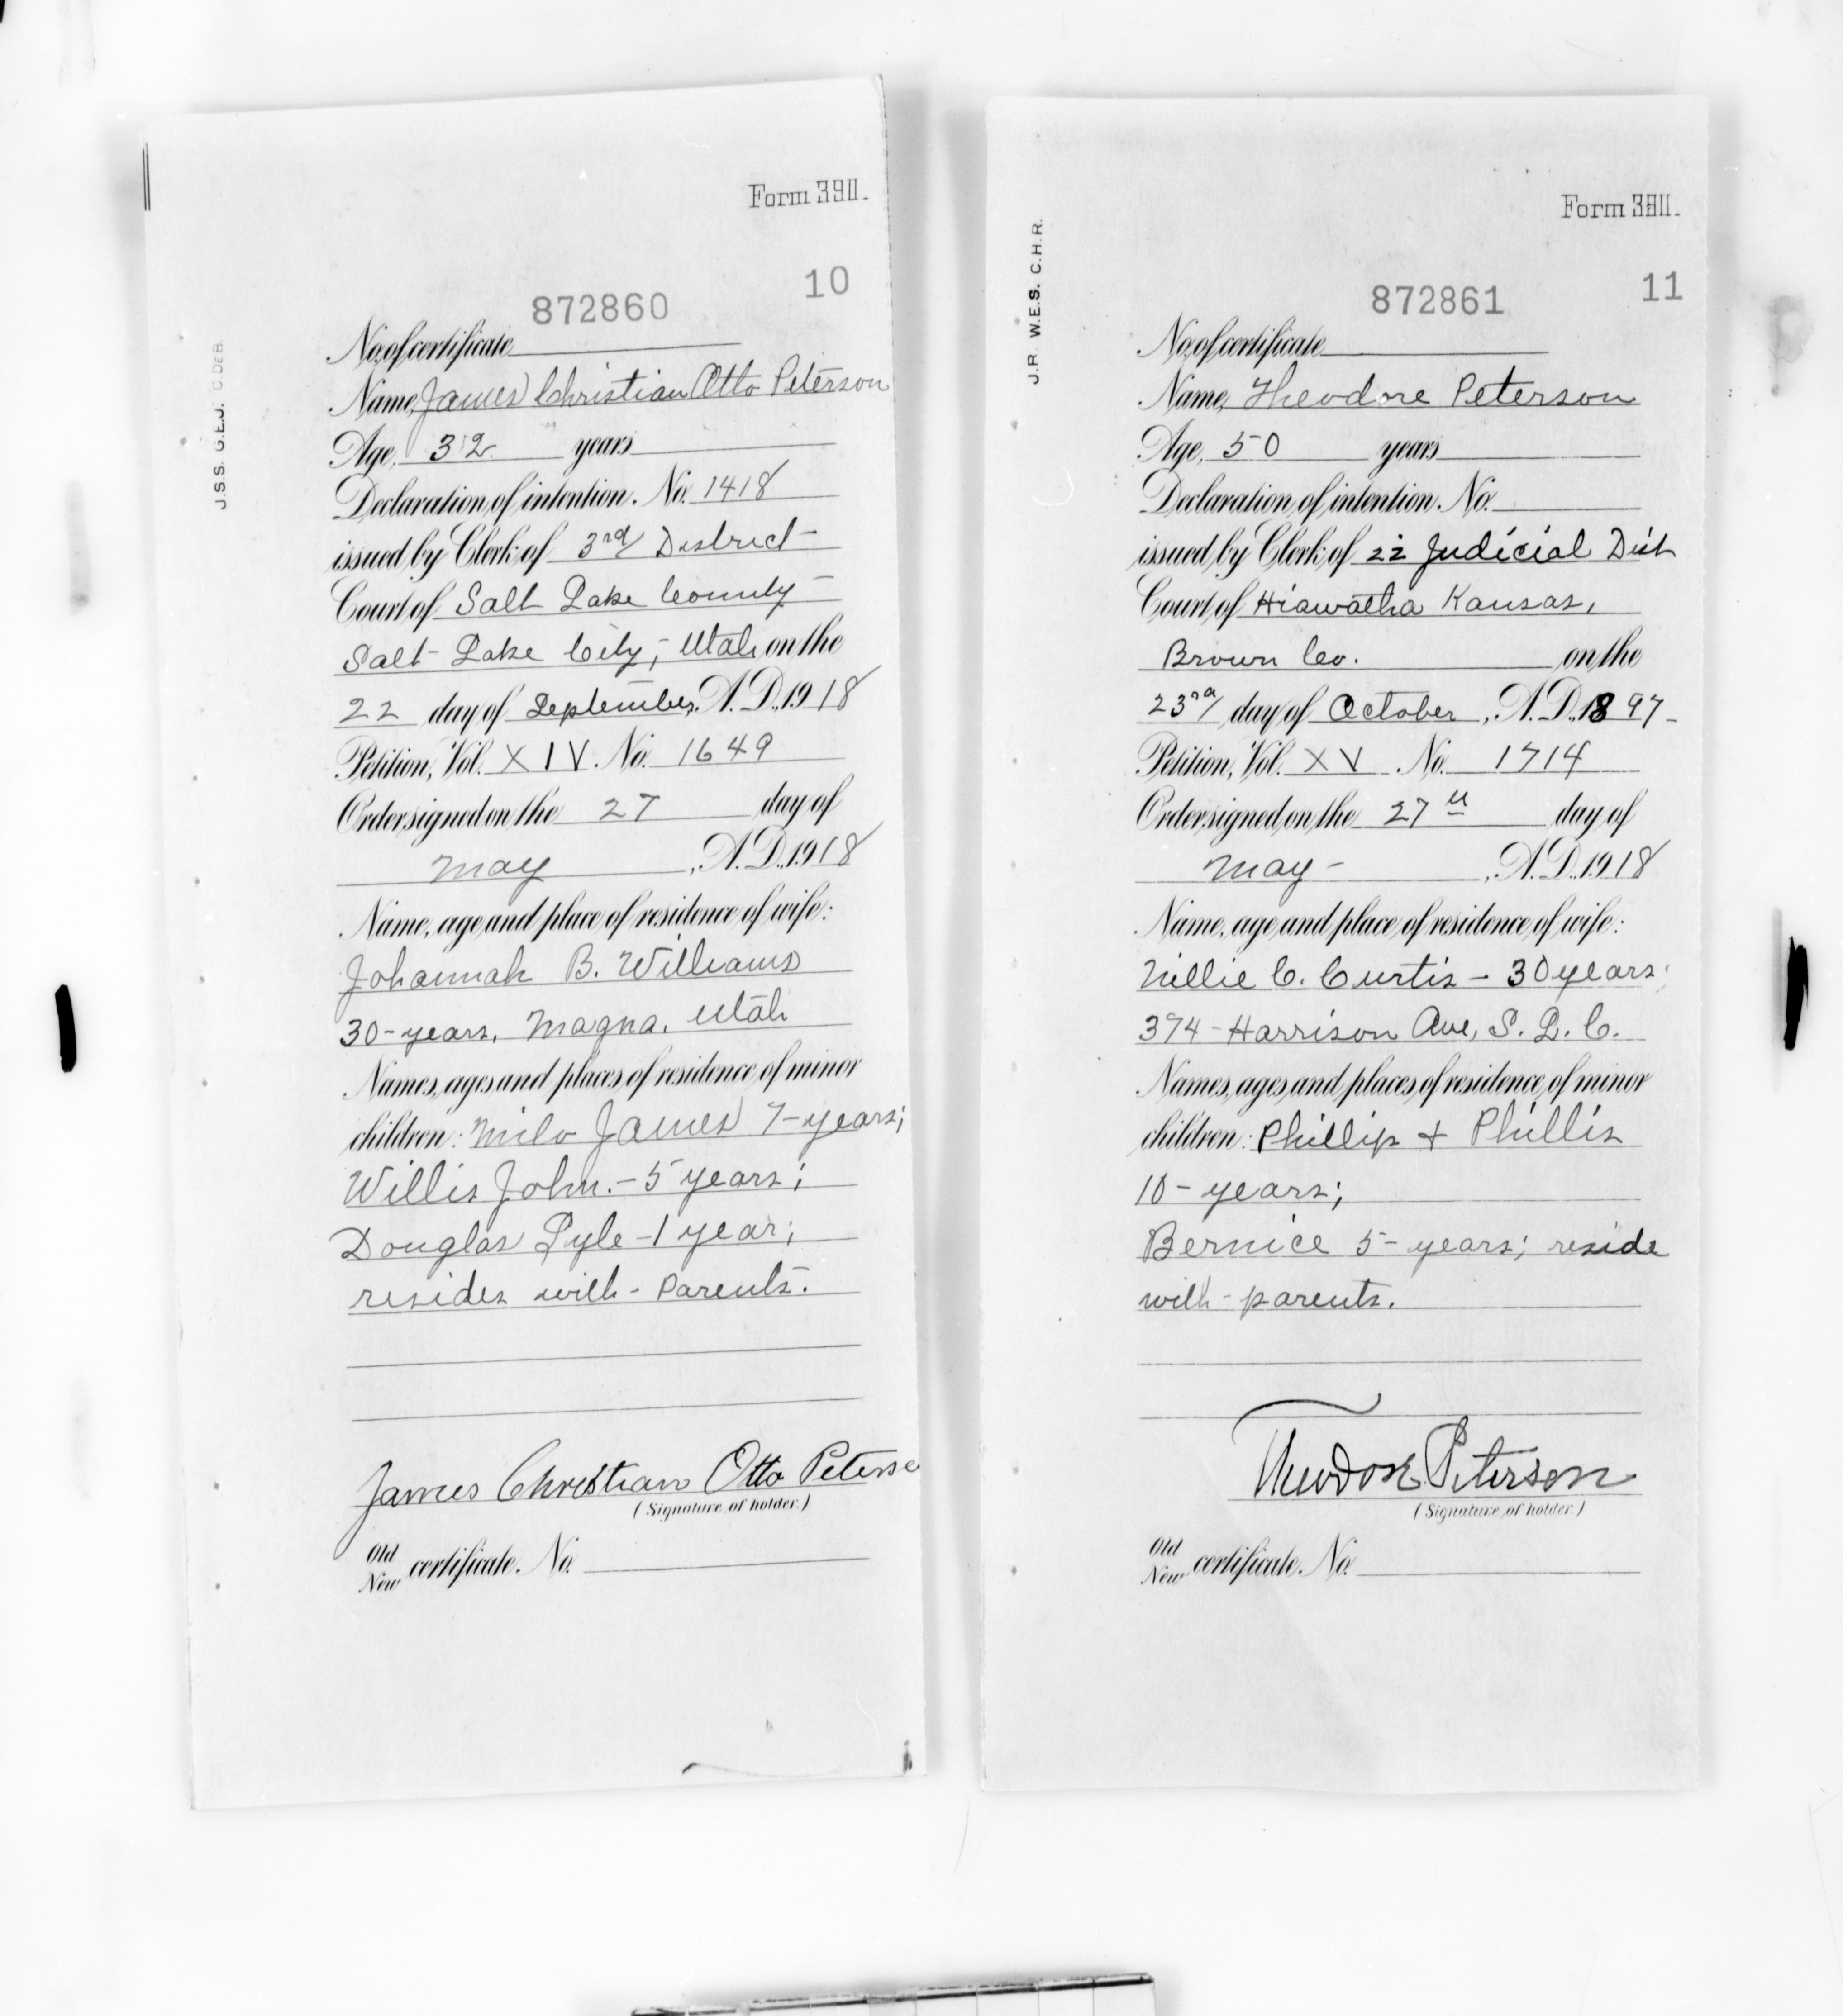 J.S.S. G.E.J. C DEB.
Form 390.
872860
10
No. of certificate
Name, James Christian Otto Peterson
Age, 32 years
Declaration of intention. No. 1418
issued by Clerk of 3rd District
Court of Salt Lake County
Salt Lake City, Utah on the
22 day of September, A.D. 1918
Petition, Vol. XIV. No. 1649
Order signed on the 27 day of
May, A.D. 1918
Name, age and place of residence of wife:
Johannah B. Williams
30-years, Magna, Utah
Names, ages and places of residence of minor
children: Milo James 7-years;
Willis John.-5 years;
Douglas Lyle-1 year;
resides with-Parents.
James Christian Otto Peterse
(Signature of holder.)
Old
New certificate. No.
J.R. W.E.S. C.H.R.
Form 390.
872861
11
No. of certificate
Name, Theodore Peterson
Age, 50 years
Declaration of intention. No.
issued by Clerk of 22 Judicial Dist
Court of Hiawatha Kansas,
Brown Co. on the
23rd day of October, A.D. 1897-
Petition, Vol. XV. No. 1714
Order signed on the 27th day of
May-, A.D. 1918
Name, age and place of residence of wife:
Nellie C. Curtis-30 years;
374-Harrison Ave, S.L.C.
Names, ages and places of residence of minor
children: Phillip + Phillis
10-years;
Bernice 5-years; reside
with-parents.
Theodore Peterson
(Signature of holder.)
Old
New certificate. No.